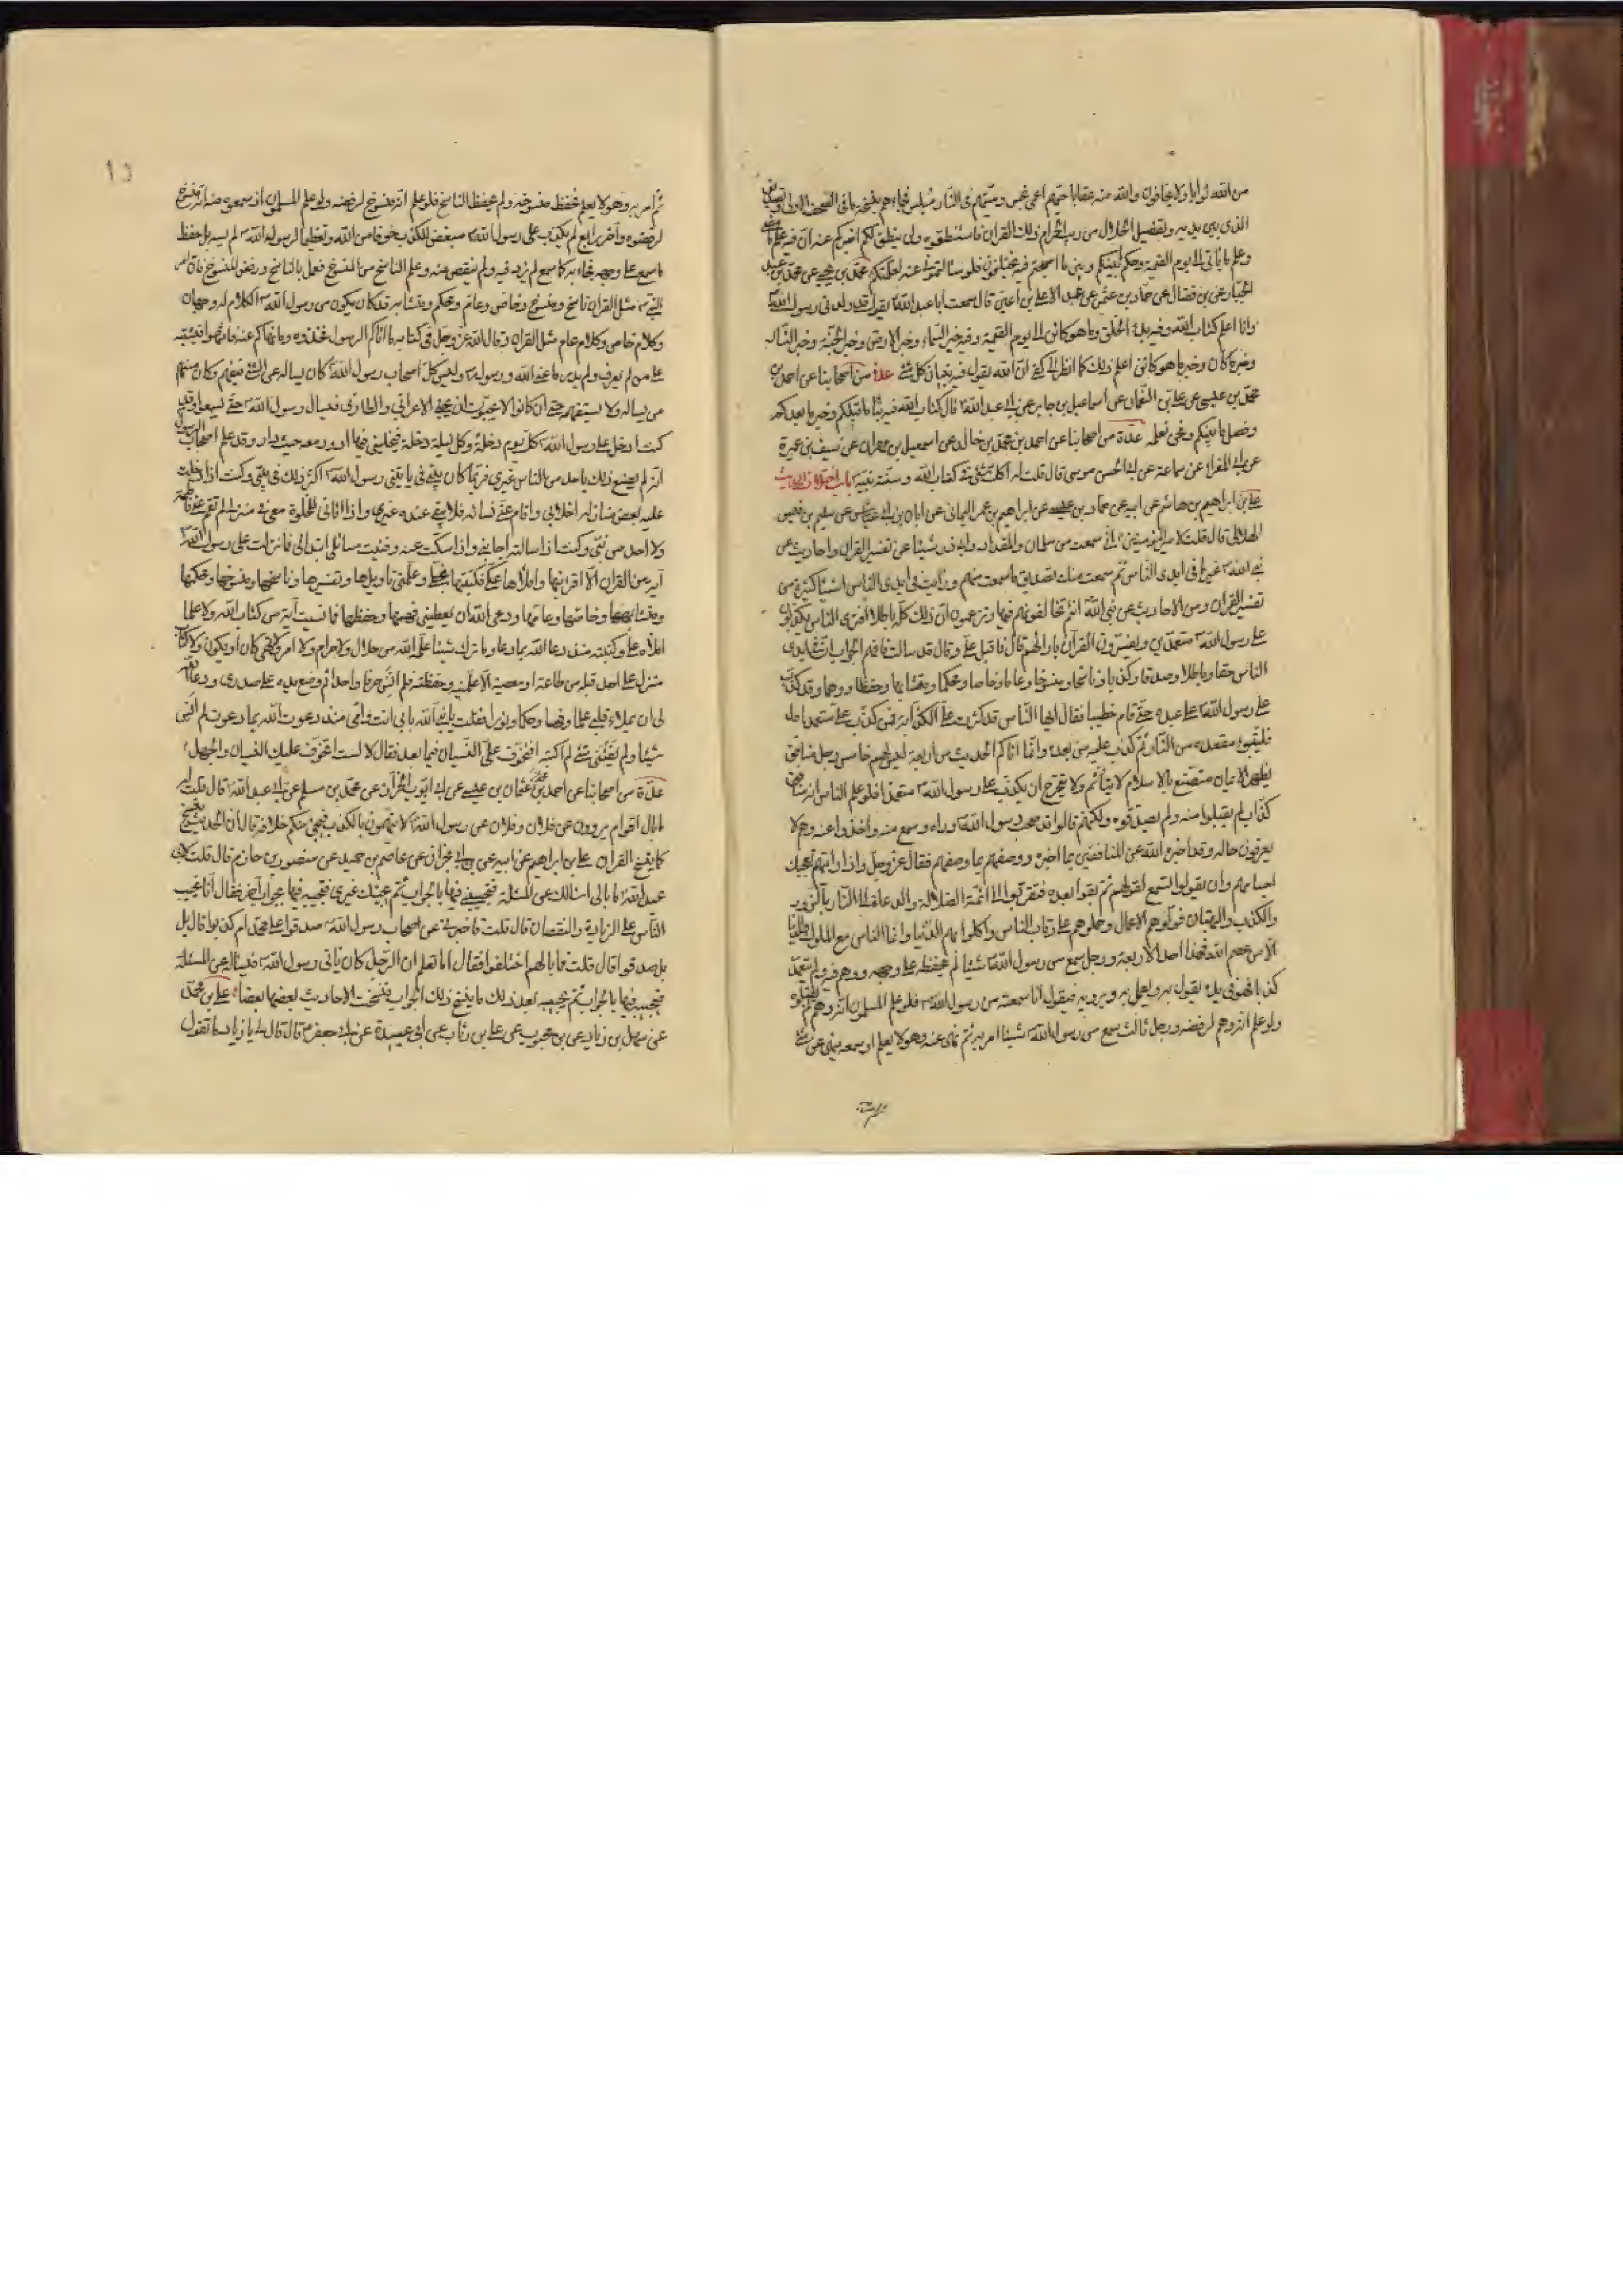 من الله ثوابا ولا يخافون والله منه عقابا حيهم اعمى نجس وميتهم في النار مبلس فجاءهم بنسخة ما في الصحف الاولى وتصديق
الذي بين يديه وتفصيل الحلال من ريب الحرام ذلك القران فاستنطقوه ولن ينطق لكم اخبركم عنه ان فيه علم ما مضى
وعلم ما ياتي الى يوم القيمة وحكم ما بينكم وبيان ما اصبحتم فيه تختلفون فلو سالتموني عنه لعلمتكم محمد بن يحيى عن محمد بن عبد
الجبار عن بن فضال عن حماد بن عثمن عن عبد الاعلى بن اعين قال سمعت ابا عبد الله يقول قد ولدني رسول الله
وانا اعلم كتاب الله وفيه بدء الخلق وما هو كائن الى يوم القيمة وفيه خبر السماء وخبر الارض وخبر الجنة وخبر النار
وخبر ما كان وخبر ما هو كائن اعلم ذلك كما انظر الى كفي ان الله يقول فيه تبيان كل شئ عدة من اصحابنا عن احمد بن
محمد بن عيسى عن علي بن النعمان عن اسماعيل بن جابر عن ابي عبد الله قال كتاب الله فيه نبأ ما قبلكم وخبر ما بعدكم
وفصل ما بينكم ونحن نعلمه عدة من اصحابنا عن احمد بن محمد بن خالد عن اسمعيل بن مهران عن سيف بن عميرة
عن ابي المغرا عن سماعة عن ابي الحسن موسى قال قلت له اكل شئ في كتاب الله وسنة نبيه باب اختلاف الحديث
علي بن ابراهيم بن هاشم عن ابيه عن حماد بن عيسى عن ابراهيم بن عمر اليماني عن ابان بن ابي عياش عن سليم بن قيس
الهلالي قال قلت لامير المؤمنين اني سمعت من سلمان والمقداد وابي ذر شيئا من تفسير القران واحاديث عن
نبي الله غير ما في ايدي الناس ثم سمعت منك تصديق ما سمعت منهم ورايت في ايدي الناس اشياء كثيرة من
تفسير القران ومن الاحاديث عن نبي الله انتم تخالفونهم فيها وتزعمون ان ذلك كله باطل افترى الناس يكذبون
على رسول الله متعمدين ويفسرون القرآن بارائهم قال فاقبل علي وقال قد سالت فافهم الجواب ان في ايدي
الناس حقا وباطلا وصدقا وكذبا وناسخا ومنسوخا وعاما وخاصا ومحكما ومتشابها وحفظا ووهما وقد كذب
على رسول الله على عهده حتى قام خطيبا فقال ايها الناس قد كثرت علي الكذابة فمن كذب علي متعمدا
فليتبوء مقعده من النار ثم كذب عليه من بعده وانما اتاكم الحديث من اربعة ليس لهم خامس رجل منافق
يظهر الايمان متصنع بالاسلام لا يتأثم ولا يتحرج ان يكذب على رسول الله متعمدا فلو علم الناس انه منافق
كذاب لم يقبلوا منه ولم يصدقوه ولكنهم قالوا قد صحب رسول الله وراه وسمع منه واخذوا عنه وهم لا
يعرفون حاله وقد اخبره الله عن المنافقين بما اخبره ووصفهم بما وصفهم فقال عز وجل واذا رايتهم تعجبك
اجسامهم وان يقولوا تسمع لقولهم ثم بقوا بعده فتقربوا الى ائمة الضلالة والدعاة الى النار بالزور
والكذب والبهتان فولوهم الاعمال وحملوهم على رقاب الناس واكلوا بهم الدنيا وانما الناس مع الملوك والدنيا
الا من عصم الله فهذا احد الاربعة ورجل سمع من رسول الله شيئا لم يحفظه على وجهه ووهم فيه ولم يتعمد
كذبا فهو في يده يقول به ويعمل به ويرويه فيقول انا سمعته من رسول الله فلو علم المسلمون انه وهم لم يقبلوه
ولو علم انه وهم لرفضه ورجل ثالث سمع من رسول الله شيئا امر به ثم نهى عنه وهو لا يعلم او سمعه ينهى عن شئ
ثم امر به وهو لا يعلم فحفظ منسوخه ولم يحفظ الناسخ فلو علم انه منسوخ لرفضه ولو علم المسلمون اذ سمعوه منه انه منسوخ
لرفضوه واخر رابع لم يكذب على رسول الله مبغض للكذب خوفا من الله وتعظيما لرسول الله لم ينسه بل حفظ
ما سمع على وجهه فجاء به كما سمع لم يزد فيه ولم ينقص منه وعلم الناسخ من المنسوخ فعمل بالناسخ ورفض المنسوخ فان امر
النبي مثل القران ناسخ ومنسوخ وخاص وعام ومحكم ومتشابه قد كان يكون من رسول الله الكلام له وجهان
وكلام خاص وكلام عام مثل القران وقال الله عز وجل في كتابه ما اتاكم الرسول فخذوه وما نهاكم عنه فانتهوا فيشتبه
على من لم يعرف ولم يدر ما عنى الله ورسوله وليس كل اصحاب رسول الله كان يساله عن الشئ فيفهم وكان منهم
من يساله ولا يستفهمه حتى ان كانوا ليحبون ان يجئ الاعرابي والطاري فيسال رسول الله حتى يسمعوا وقد
كنت ادخل على رسول الله كل يوم دخلة وكل ليلة دخلة فيخليني فيها ادور معه حيث دار وقد علم اصحاب رسول
انه لم يصنع ذلك باحد من الناس غيري فربما كان في بيتي ياتيني رسول الله اكثر ذلك في بيتي وكنت اذا دخلت
عليه بعض منازله اخلاني واقام عني نسائه فلا يبقى عنده غيري واذا اتاني للخلوة معي في منزلي لم تقم عني فاطمة
ولا احد من بني وكنت اذا سالته اجابني واذا سكت عنه وفنيت مسائلي ابتداني فما نزلت على رسول الله
آية من القران الا اقرانيها واملاها علي فكتبتها بخطي وعلمني تاويلها وتفسيرها وناسخها ومنسوخها ومحكمها
ومتشابهها وخاصها وعامها ودعى الله ان يعطيني فهمها وحفظها فما نسيت آية من كتاب الله ولا علما
املاه علي وكتبته منذ دعا الله بما دعا وما ترك شيئا علمه الله من حلال ولا حرام ولا امر ولا نهي كان او يكون ولا كتاب
منزل على احد قبله من طاعة او معصية الا علمنيه وحفظته فلم انس حرفا واحدا ثم وضع يده على صدري ودعا الله
لي ان يملاء قلبي علما وفهما وحكما ونورا فقلت يا نبي الله بابي انت وامي منذ دعوت الله بما دعوت لم انس
شيئا ولم يفتني شئ لم اكتبه افتخوف علي النسيان فيما بعد فقال لا لست اتخوف عليك النسيان والجهل
عدة من اصحابنا عن احمد بن محمد عن عثمان بن عيسى عن ابي ايوب الخزاز عن محمد بن مسلم عن ابي عبد الله قال قلت له
ما بال اقوام يروون عن فلان وفلان عن رسول الله لا يتهمون بالكذب فيجئ منكم خلافه قال ان الحديث ينسخ
كما ينسخ القران علي بن ابراهيم عن ابيه عن ابن ابي نجران عن عاصم بن حميد عن منصور بن حازم قال قلت لابي
عبد الله ما بالي اسالك عن المسئلة فتجيبني فيها بالجواب ثم يجيئك غيري فتجيبه فيها بجواب آخر فقال انا نجيب
الناس على الزيادة والنقصان قال قلت فاخبرني عن اصحاب رسول الله صدقوا على محمد ام كذبوا قال بل
بل صدقوا قال قلت فما بالهم اختلفوا فقال اما تعلم ان الرجل كان ياتي رسول الله فيساله عن المسئلة
فيجيبه فيها بالجواب ثم يجيبه بعد ذلك ما ينسخ ذلك الجواب فنسخت الاحاديث بعضها بعضا علي بن محمد
عن سهل بن زياد عن بن محبوب عن علي بن رئاب عن ابي عبيدة عن ابي جعفر قال قال لي يا زياد ما تقول